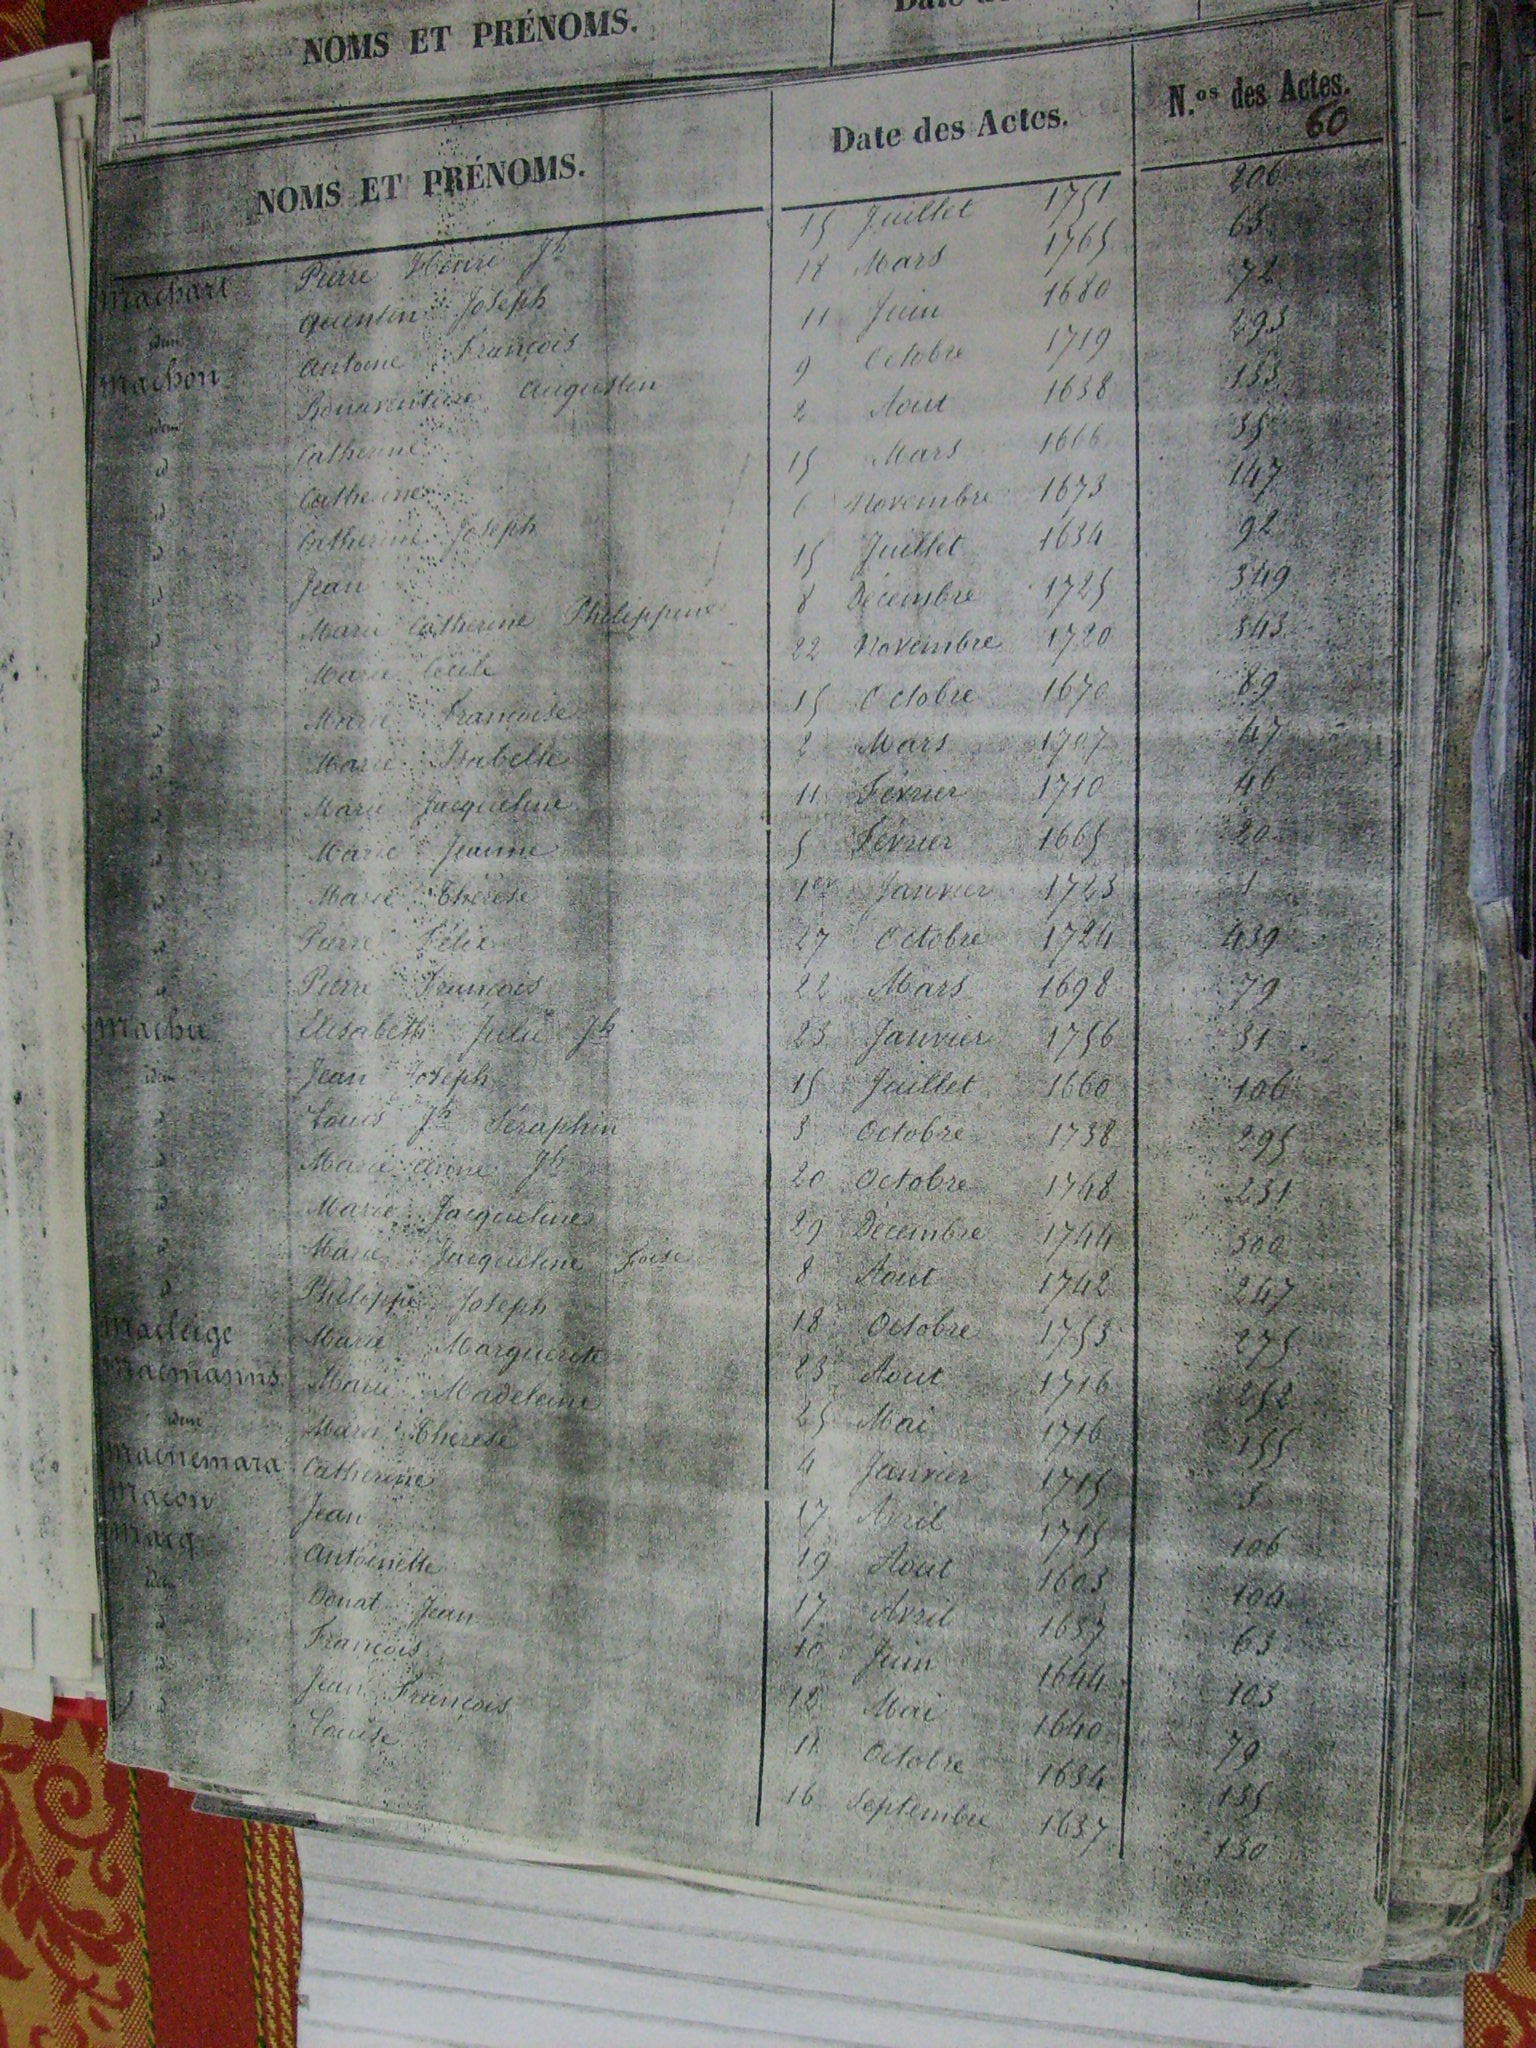 NOMS ET PRÉNOMS.
NOMS ET PRÉNOMS. Date des Actes. N.os des Actes.
60
Machart Pierre Henri Jh 15 Juillet 1751 206
idem Quentin Joseph 18 Mars 1765 63
Machon Antoine François 11 Juin 1680 72
idem Bonaventure Augustin 9 Octobre 1719 293
id Catherine 2 Aout 1638 133
id Catherine 15 Mars 1666 35
id Catherine Joseph 6 Novembre 1673 147
id Jean 15 Juillet 1634 92
id Marie Catherine Philippine 8 Décembre 1725 349
id Marie Cécile 22 Novembre 1720 343
id Marie Françoise 15 Octobre 1670 89
id Marie Isabelle 2 Mars 1707 47
id Marie Jacqueline 11 Février 1710 46
id Marie Jeanne 5 Février 1665 20
id Marie Thérèse 1er Janvier 1723 1
id Pierre Félix 27 Octobre 1724 439
id Pierre François 22 Mars 1698 79
Machu Elisabeth Julie Jh 23 Janvier 1756 31
idem Jean Joseph 15 Juillet 1660 106
id Louis Jh Séraphin 3 Octobre 1738 295
id Marie Anne Jh 20 Octobre 1748 231
id Marie Jacqueline 29 Décembre 1744 300
id Marie Jacqueline Foise 8 Aout 1742 247
id Philippe Joseph 18 Octobre 1753 275
Macleige Marie Marguerite 23 Aout 1716 252
Macmanus Marie Madeleine 25 Mai 1716 155
idem Marie Thérèse 4 Janvier 1715 3
Macnemara Catherine 17 Avril 1715 106
Macon Jean 19 Aout 1603 104
Macq Antoinette 17 Avril 1637 63
idem Donat Jean 10 Juin 1644 103
id François 12 Mai 1640 79
id Jean François 11 Octobre 1634 135
id Louise 16 Septembre 1637 130